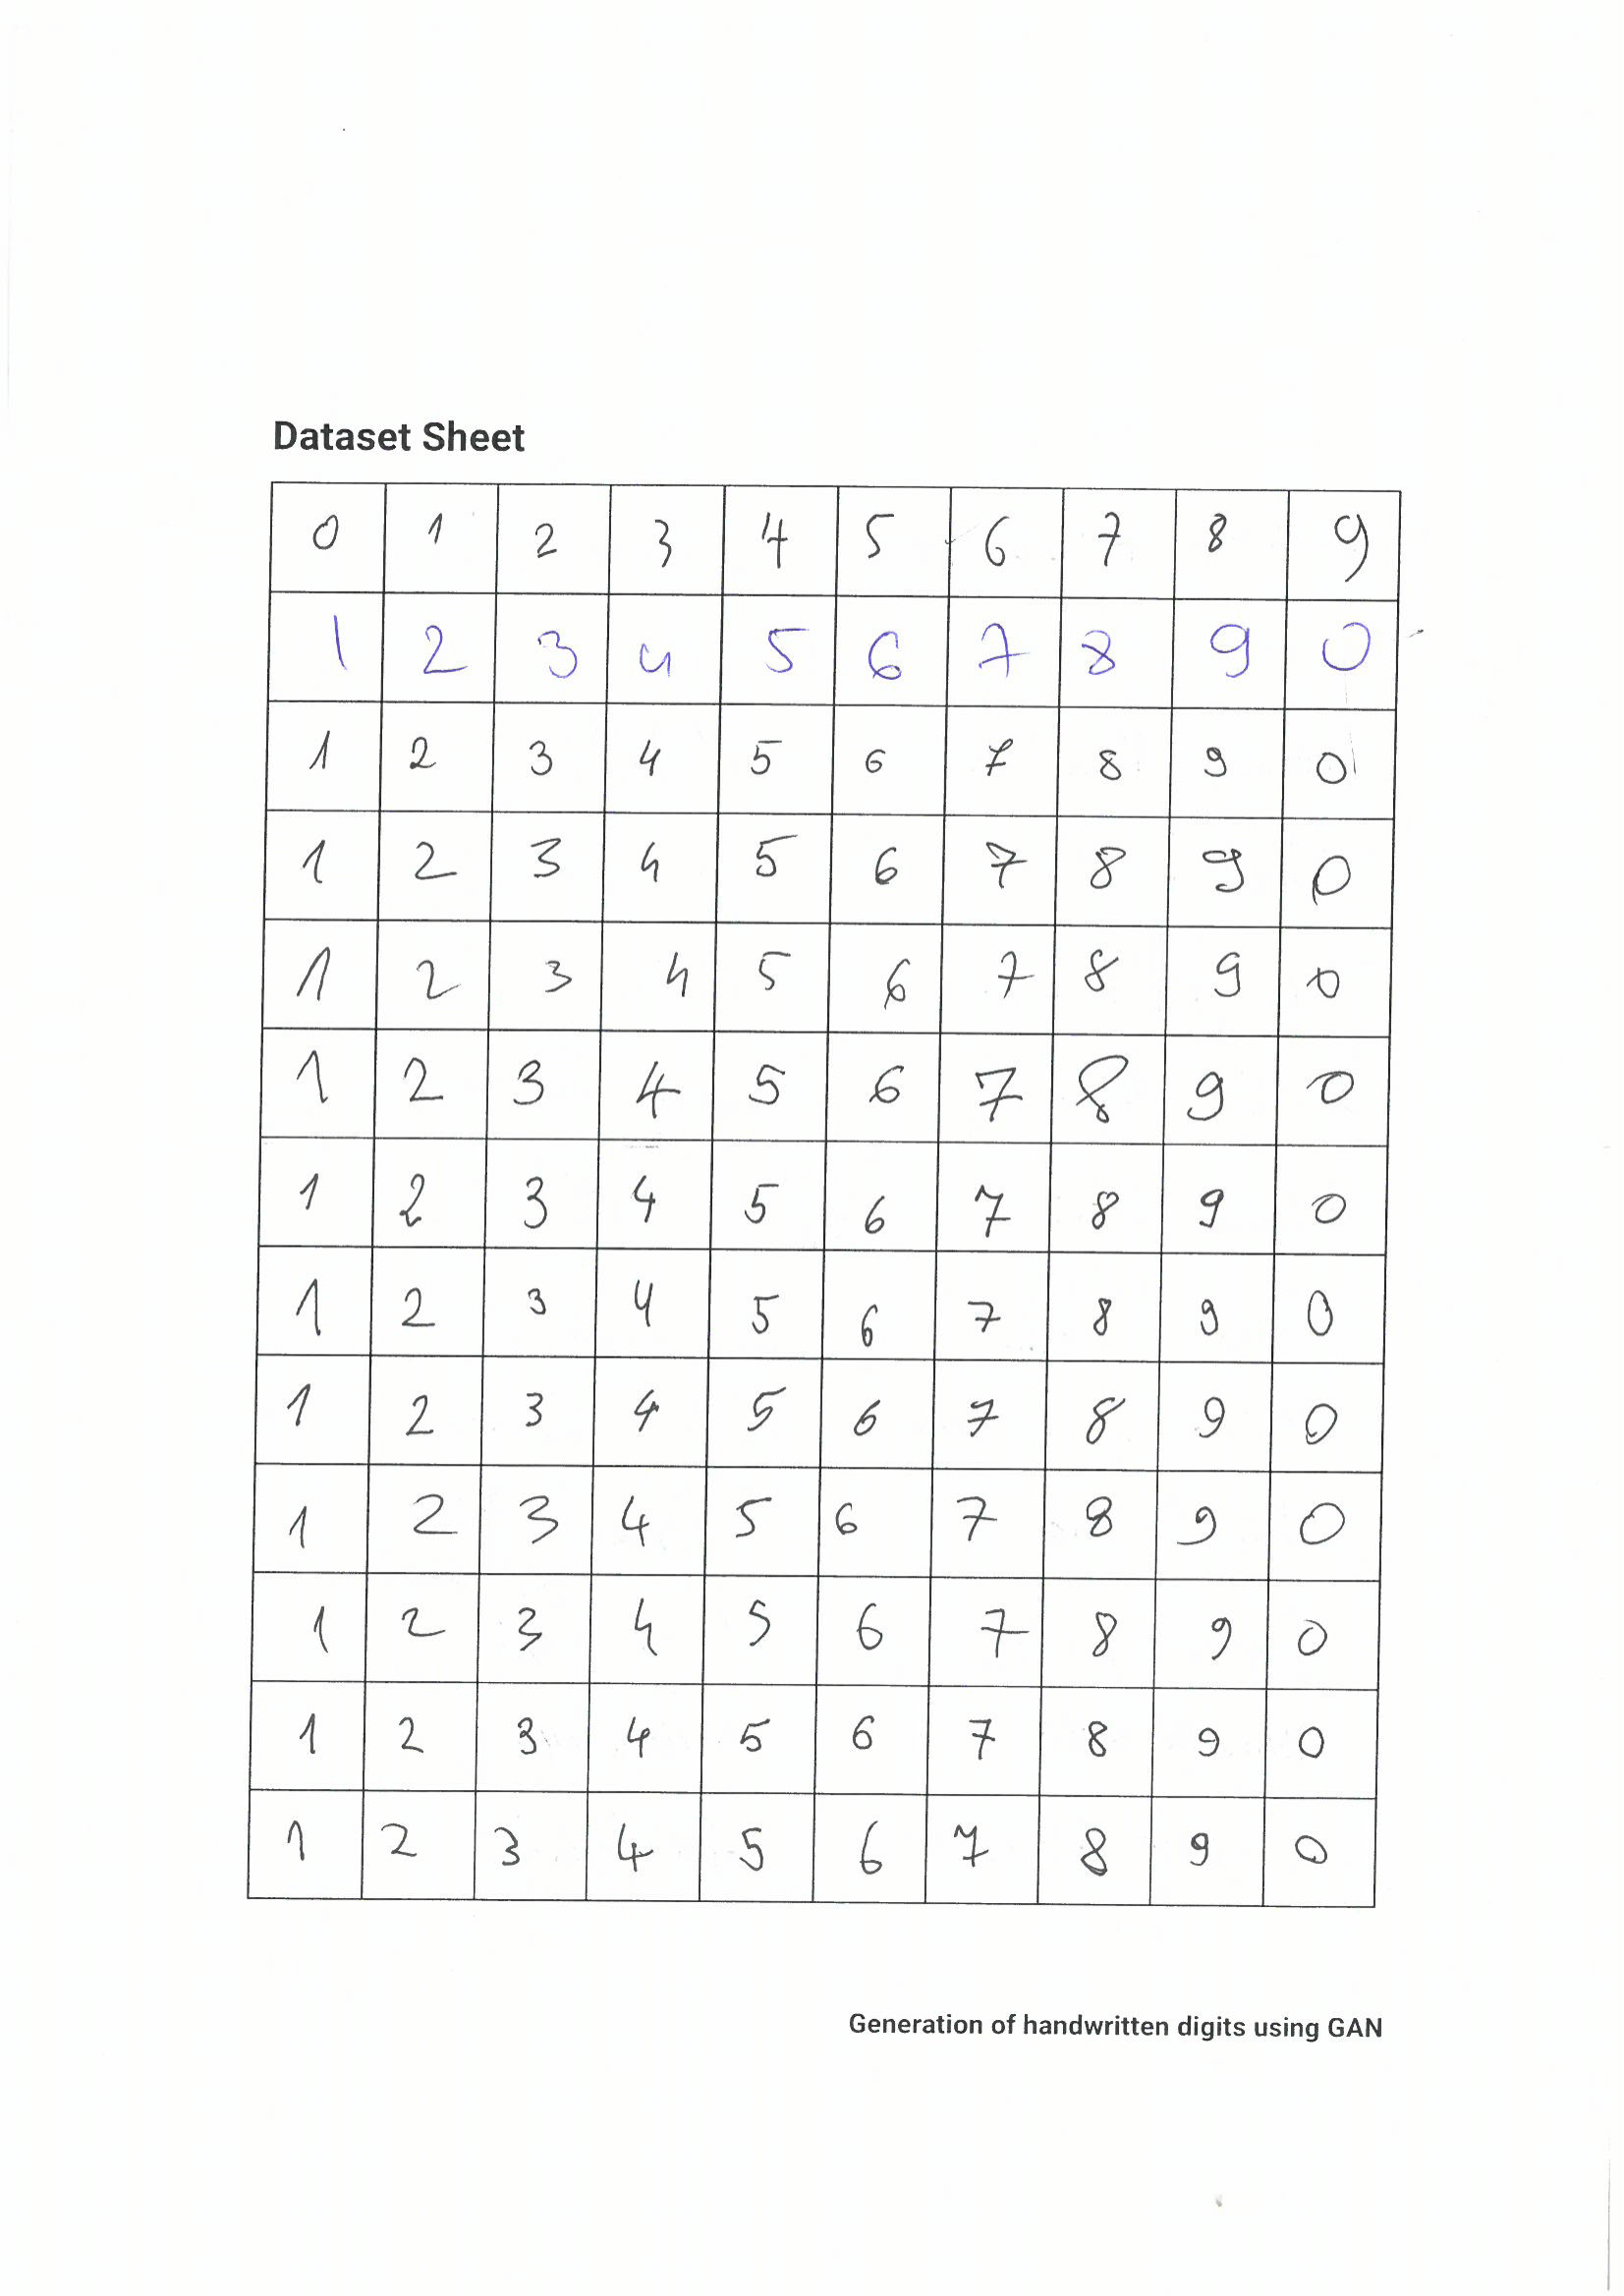 Dataset Sheet
0 1 2 3 4 5 6 7 8 9
1 2 3 4 5 6 7 8 9 0
1 2 3 4 5 6 7 8 9 0
1 2 3 4 5 6 7 8 9 0
1 2 3 4 5 6 7 8 9 0
1 2 3 4 5 6 7 8 9 0
1 2 3 4 5 6 7 8 9 0
1 2 3 4 5 6 7 8 9 0
1 2 3 4 5 6 7 8 9 0
1 2 3 4 5 6 7 8 9 0
1 2 3 4 5 6 7 8 9 0
1 2 3 4 5 6 7 8 9 0
1 2 3 4 5 6 7 8 9 0
Generation of handwritten digits using GAN